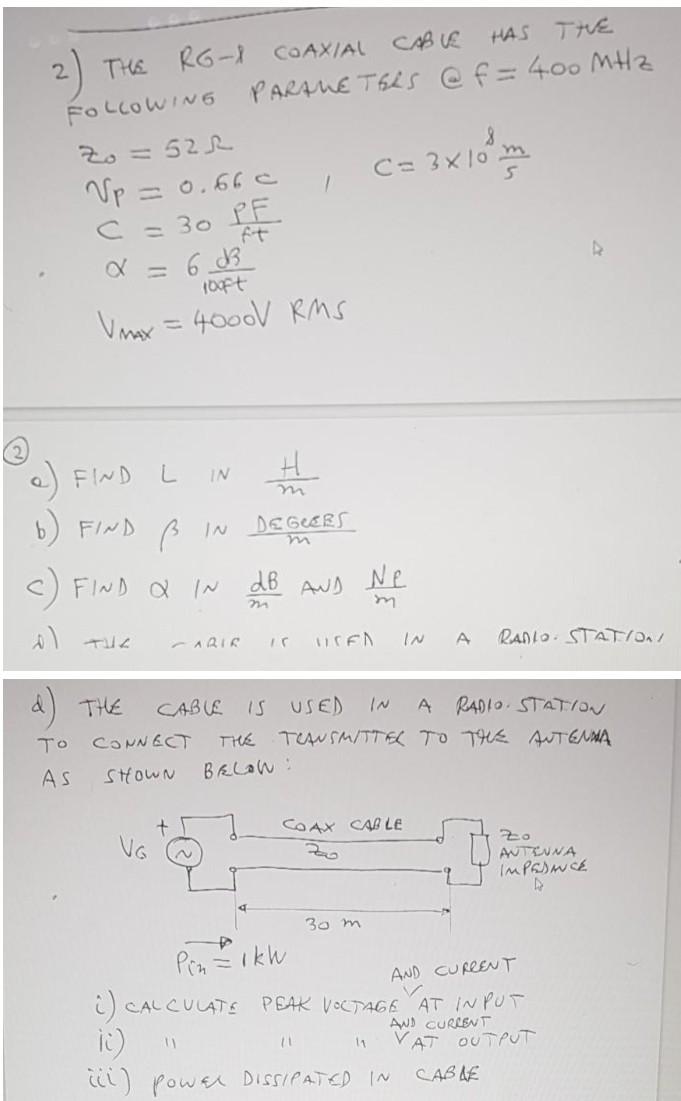 2) THE RG-8 COAXIAL CABLE HAS THE
FOLLOWING PARAMETERS @ f = 400 MHz
Zo = 52 Ω
Vp = 0.66 c , C = 3 x 10^8 m/s
C = 30 PF/ft
α = 6 dB/100ft
VMAX = 4000V RMS
②
a) FIND L IN H/m
b) FIND β IN DEGREES/m
c) FIND α IN dB/m AND Np/m
d) THE CABLE IS USED IN A RADIO. STATION
d) THE CABLE IS USED IN A RADIO. STATION
TO CONNECT THE TRANSMITTER TO THE ANTENNA
AS SHOWN BELOW:
+ VG ~ COAX CABLE Zo Zo
ANTENNA
IMPEDANCE
30 m
Pin = 1 kW
AND CURRENT
i) CALCULATE PEAK VOLTAGE AT INPUT
AND CURRENT
ii) " " " AT OUTPUT
iii) POWER DISSIPATED IN CABLE